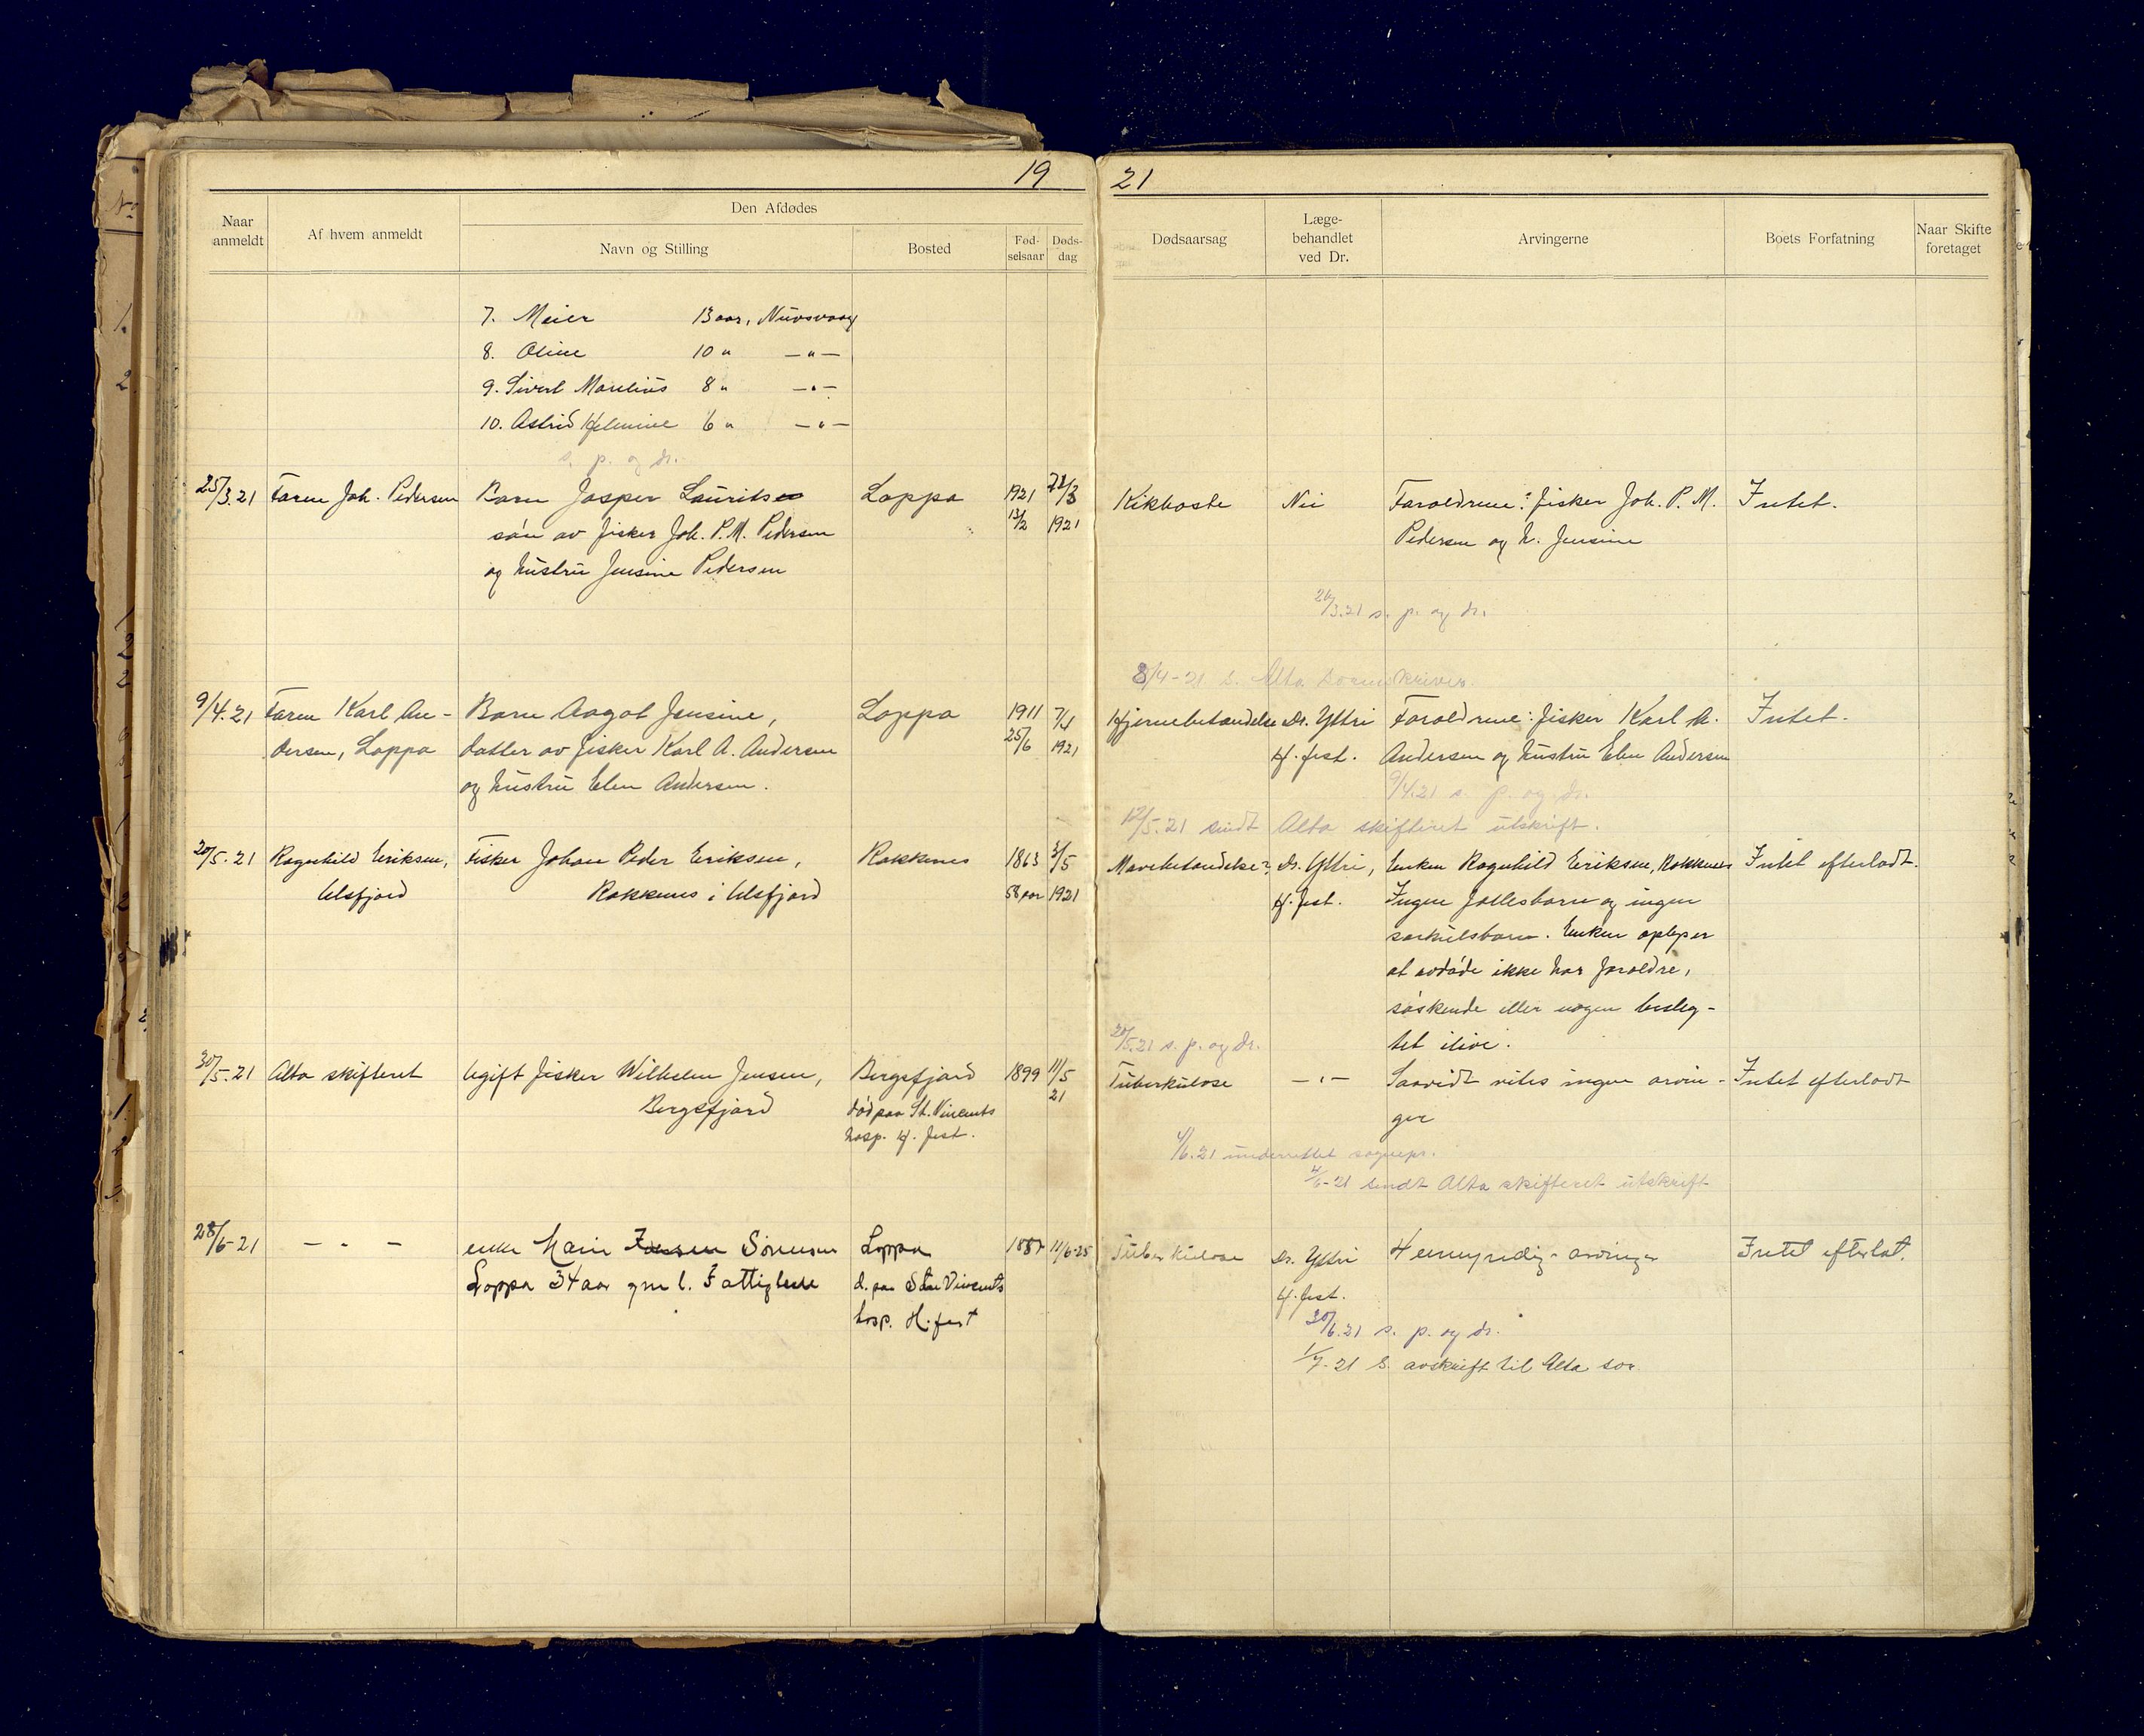 19 21
Naar anmeldt
Af hvem anmeldt
Den Afdødes
Navn og Stilling
Bosted
Fød-selsaar
Døds-dag
Dødsaarsag
Læge-behandlet ved Dr.
Arvingerne
Boets Forfatning
Naar Skifte foretaget
7. Meier 13 aar, Nuvsvaag
8. Oline 10 " — " —
9. Sivert 8 " — " —
10. Astrid 6 " — " —
s. p. og dr.
25/3.21 Faren Joh. Pedersen Barn Jasper Laurits Loppa 1921 /3 Kikhoste Nei Forældrene: fisker Joh. P. M. Intet.
søn av fisker Joh. P. M. Pedersen 13/2 1921 Pedersen og h. Jensine
og hustru Jensine Pedersen
26/3.21 s. p. og dr.
8/4-21 s. Alta sorenskriver.
9/4.21 Faren Karl An- Barn Aagot Jensine, Loppa 1911 7/4 Hjernebetændelse Dr. Yttri Forældrene: fisker Karl A. Intet.
dersen, Loppa datter av fisker Karl A. Andersen 25/6 1921 H.fest. Andersen og hustru Elen Andersen
og hustru Elen Andersen.
9/4.21 s. p. og dr.
12/5.21 sendt Alta skifteret utskrift.
20/5.21 Ragnhild Eriksen, Fisker Johan Peder Eriksen, Kokknes 1863 /5 Mavebetændelse? Dr. Yttri, Enken Ragnhild Eriksen, Kokknes Intet efterladt.
Ulsfjord Kokknes i Ulsfjord 58 aar 1921 H.fest. Ingen fællesbarn og ingen
særkulsbarn. Enken oplyser
at avdøde ikke har forældre,
søskende eller nogen besleg-
tet ilive.
20/5.21 s. p. og dr.
30/5.21 Alta skifteret Ugift fisker Wilhelm Jensen, Bergsfjord 1899 11/5 Tuberkulose — " — Saavidt vites ingen arvin- Intet efterladt
Bergsfjord død paa St. Vincents 21 ger
hosp. H.fest.
4/6.21 underrettet sognepr.
4/6-21 sendt Alta skifteret utskrift
28/6-21 — " — enke Marie Jensen Sørensen Loppa 1887 11/6-25 Tuberkulose Dr. Yttri 4 umyndige arvinger Intet efterlat.
Loppa 34 aar d. paa Vincents H.fest.
hosp. H.fest
30/6.21 s. p. og dr.
1/7-21 s. avskrift til Alta sor.